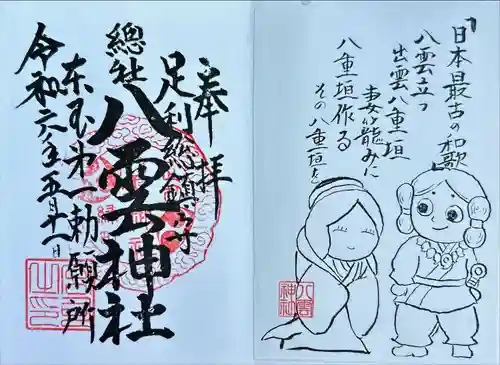 奉拝
足利総鎮守
總社
八雲神社
東国第一勅願所
令和六年五月十一日
「日本最古の和歌」
八雲立つ
出雲八重垣
妻籠みに
八重垣作る
その八重垣を
八雲
神社